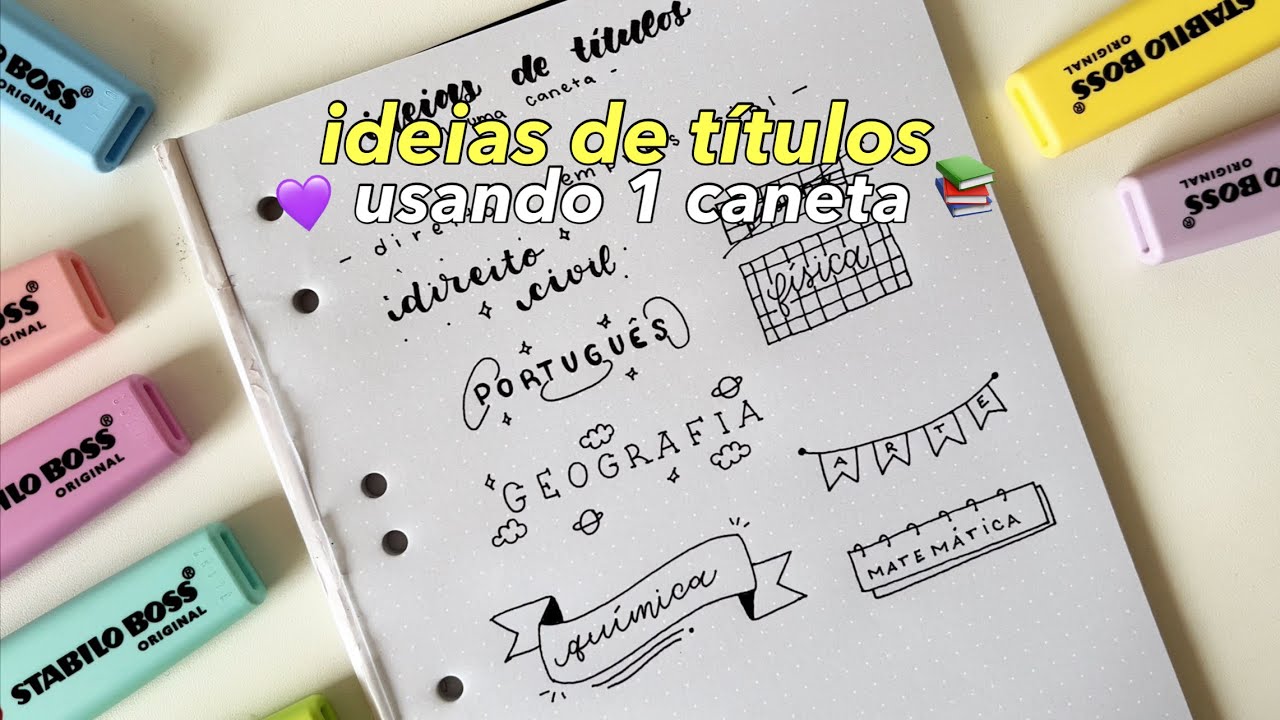 ideias de títulos
uma caneta -
ideias de títulos
usando 1 caneta
direito
civil
física
PORTUGUÊS
GEOGRAFIA
ARTE
MATEMÁTICA
química
STABILO BOSS®
ORIGINAL
STABILO BOSS®
ORIGINAL
BOSS®
ORIGINAL
ORIGINAL
ILO BOSS®
ORIGINAL
STABILO BOSS®
ORIGINAL